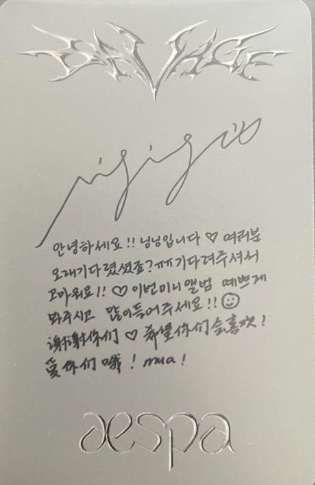 SAVAGE
안녕하세요!! 닝닝입니다♡ 여러분
오래기다렸셨죠? ㅠㅠ기다려주셔서
고마워요!! ♡ 이번미니앨범 예쁘게
봐주시고 많이들어주세요!! ☺
谢谢你们♡希望你们会喜欢!
爱你们哦! mua!
aespa